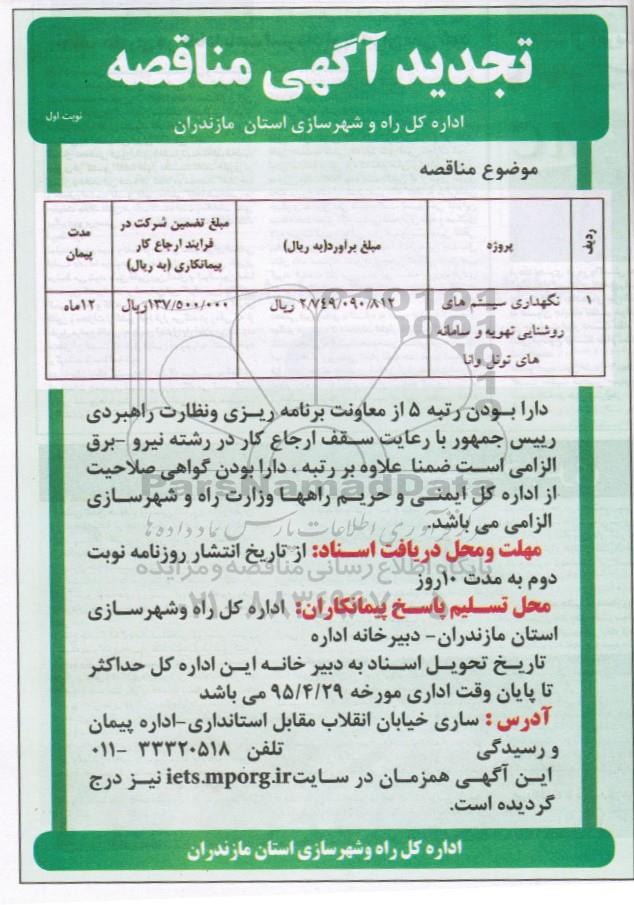 تجدید آگهی مناقصه
اداره کل راه و شهرسازی استان مازندران
نوبت اول
موضوع مناقصه
ردیف پروژه مبلغ برآورد(به ریال) مبلغ تضمین شرکت در فرایند ارجاع کار پیمانکاری (به ریال) مدت پیمان
۱ نگهداری سیستم های روشنایی تهویه و سامانه های تونل وانا ۲/۷۴۹/۰۹۰/۸۱۲ ریال ۱۳۷/۵۰۰/۰۰۰ریال ۱۲ماه
دارا بودن رتبه ۵ از معاونت برنامه ریزی ونظارت راهبردی
رییس جمهور با رعایت سقف ارجاع کار در رشته نیرو -برق
الزامی است ضمنا علاوه بر رتبه ، دارا بودن گواهی صلاحیت
از اداره کل ایمنی و حریم راهها وزارت راه و شهرسازی
الزامی می باشد.
مهلت ومحل دریافت اسناد: از تاریخ انتشار روزنامه نوبت
دوم به مدت ۱۰روز
محل تسلیم پاسخ پیمانکاران: اداره کل راه وشهرسازی
استان مازندران- دبیرخانه اداره
تاریخ تحویل اسناد به دبیر خانه این اداره کل حداکثر
تا پایان وقت اداری مورخه ۹۵/۴/۲۹ می باشد
آدرس : ساری خیابان انقلاب مقابل استانداری-اداره پیمان
و رسیدگی تلفن ۳۳۳۲۰۵۱۸ -۰۱۱
این آگهی همزمان در سایتiets.mporg.ir نیز درج
گردیده است.
اداره کل راه وشهرسازی استان مازندران
ParsNamadData
مرکز فرآوری اطلاعات پارس نماد داده ها
پایگاه اطلاع رسانی مناقصه و مزایده